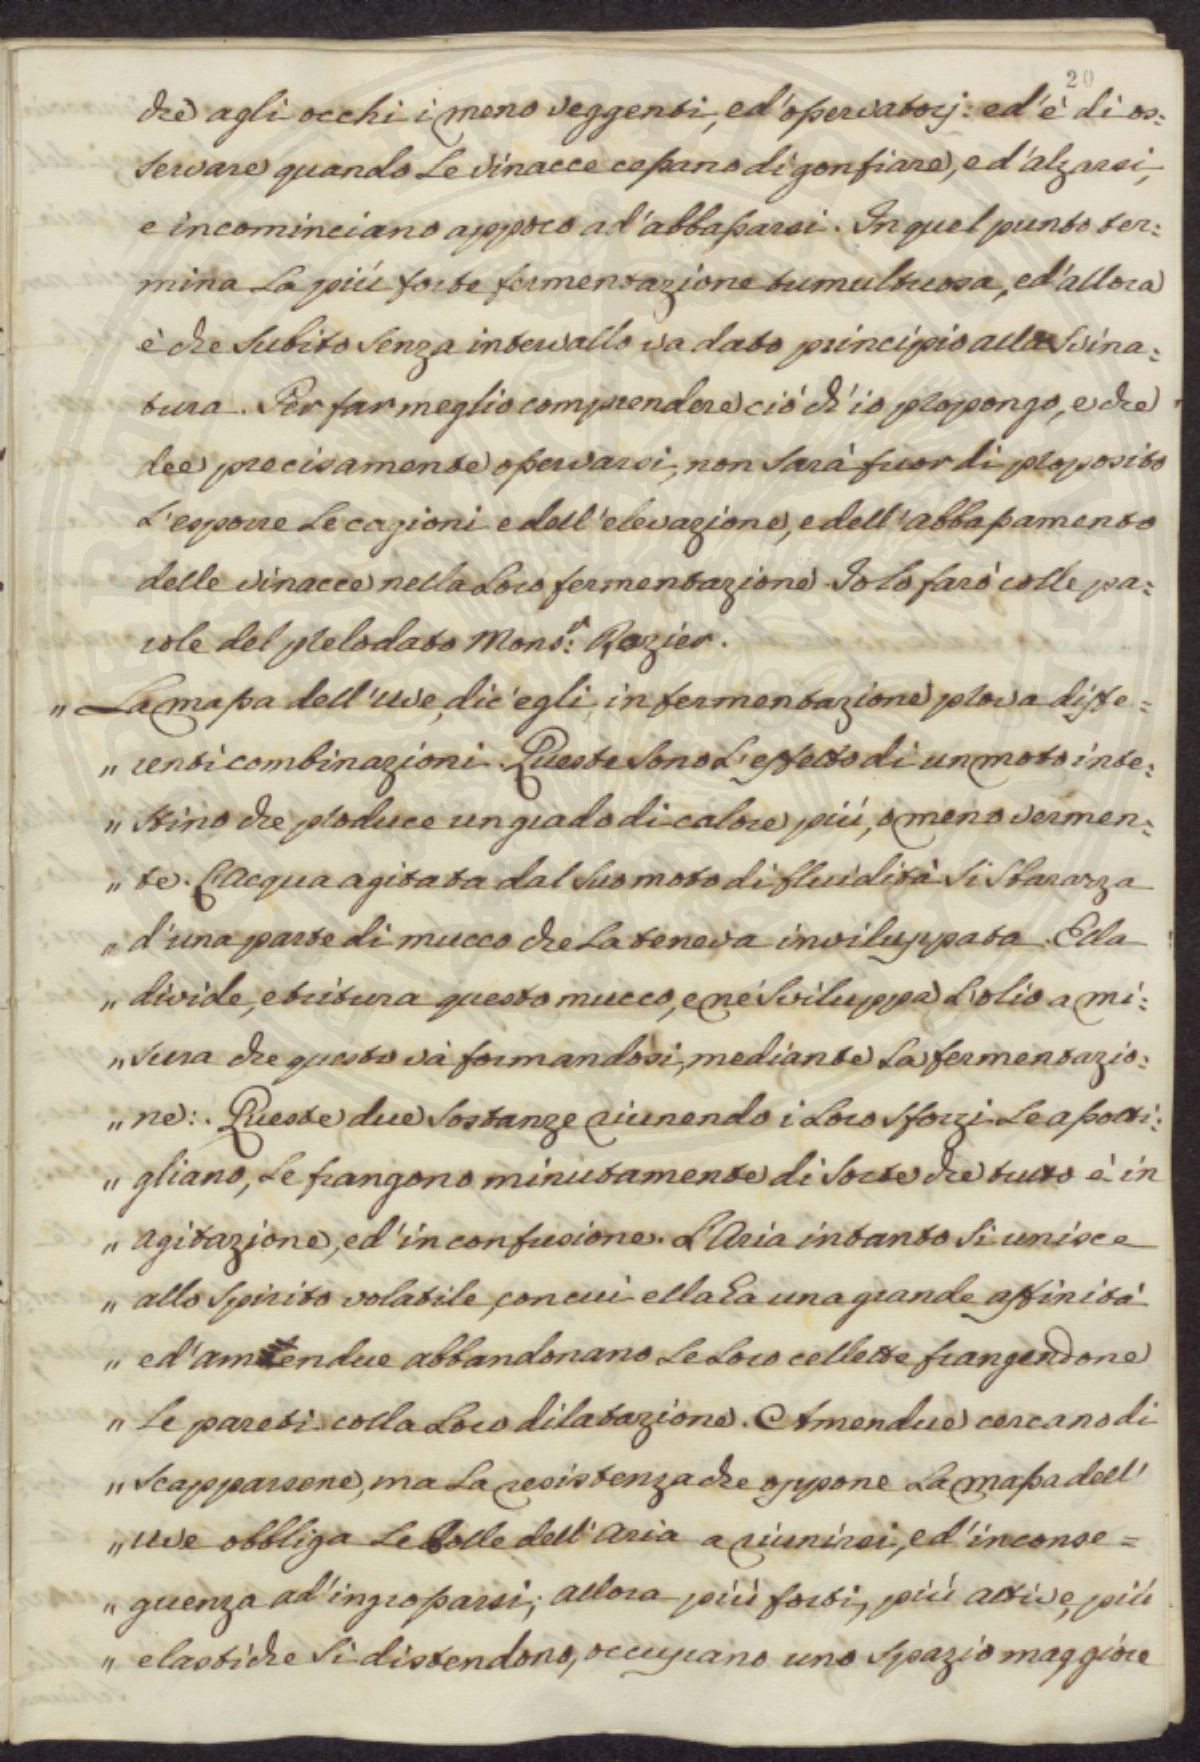 20
che agli occhi i meno veggenti, ed'osservatorj: ed'è di os:
servare quando le vinacce cessano di gonfiare, e d'alzarsi,
e incominciano appoco ad'abbassarsi. In quel punto ter:
mina la più forte fermentazione tumultuosa, ed'allora
è che subito senza intervallo va dato principio alla svina:
tura. Per far meglio comprendere ciò ch'io propongo, e che
dee precisamente osservarsi, non sarà fuor di proposito
l'esporre le cagioni e dell'elevazione, e dell'abbassamento
delle vinacce nella loro fermentazione. Io lo farò colle pa:
role del prelodato Mons.r: Rozier.
" La massa dell'uve, dic'egli, in fermentazione prova diffe=
" renti combinazioni. Queste sono l'effetto di un moto inte:
" stino che produce un grado di calore più, o meno vermen:
" te. L'Acqua agitata dal suo moto di fluidità si sbarazza
" d'una parte di mucco che la teneva inviluppata. Ella
" divide, e tritura questo mucco, e né sviluppa l'olio a mi:
" sura che questo và formandosi, mediante la fermentazio:
" ne:. Queste due sostanze riunendo i loro sforzi le assotti:
" gliano, le frangono minutamente di sorte che tutto è in
" agitazione, ed'in confusione. L'Aria intanto si unisce
" allo spirito volatile, con cui ella ha una grande affinità
" ed'amendue abbandonano le loro cellette frangendone
" le pareti colla loro dilatazione. Amendue cercano di
" scapparsene, ma la resistenza che oppone la massa dell'
" uve obbliga le bolle dell'aria a riunirsi, ed'in conse=
" guenza ad'ingrossarsi; allora più forti, più attive, più
" elastiche si distendono, occupano uno spazio maggiore